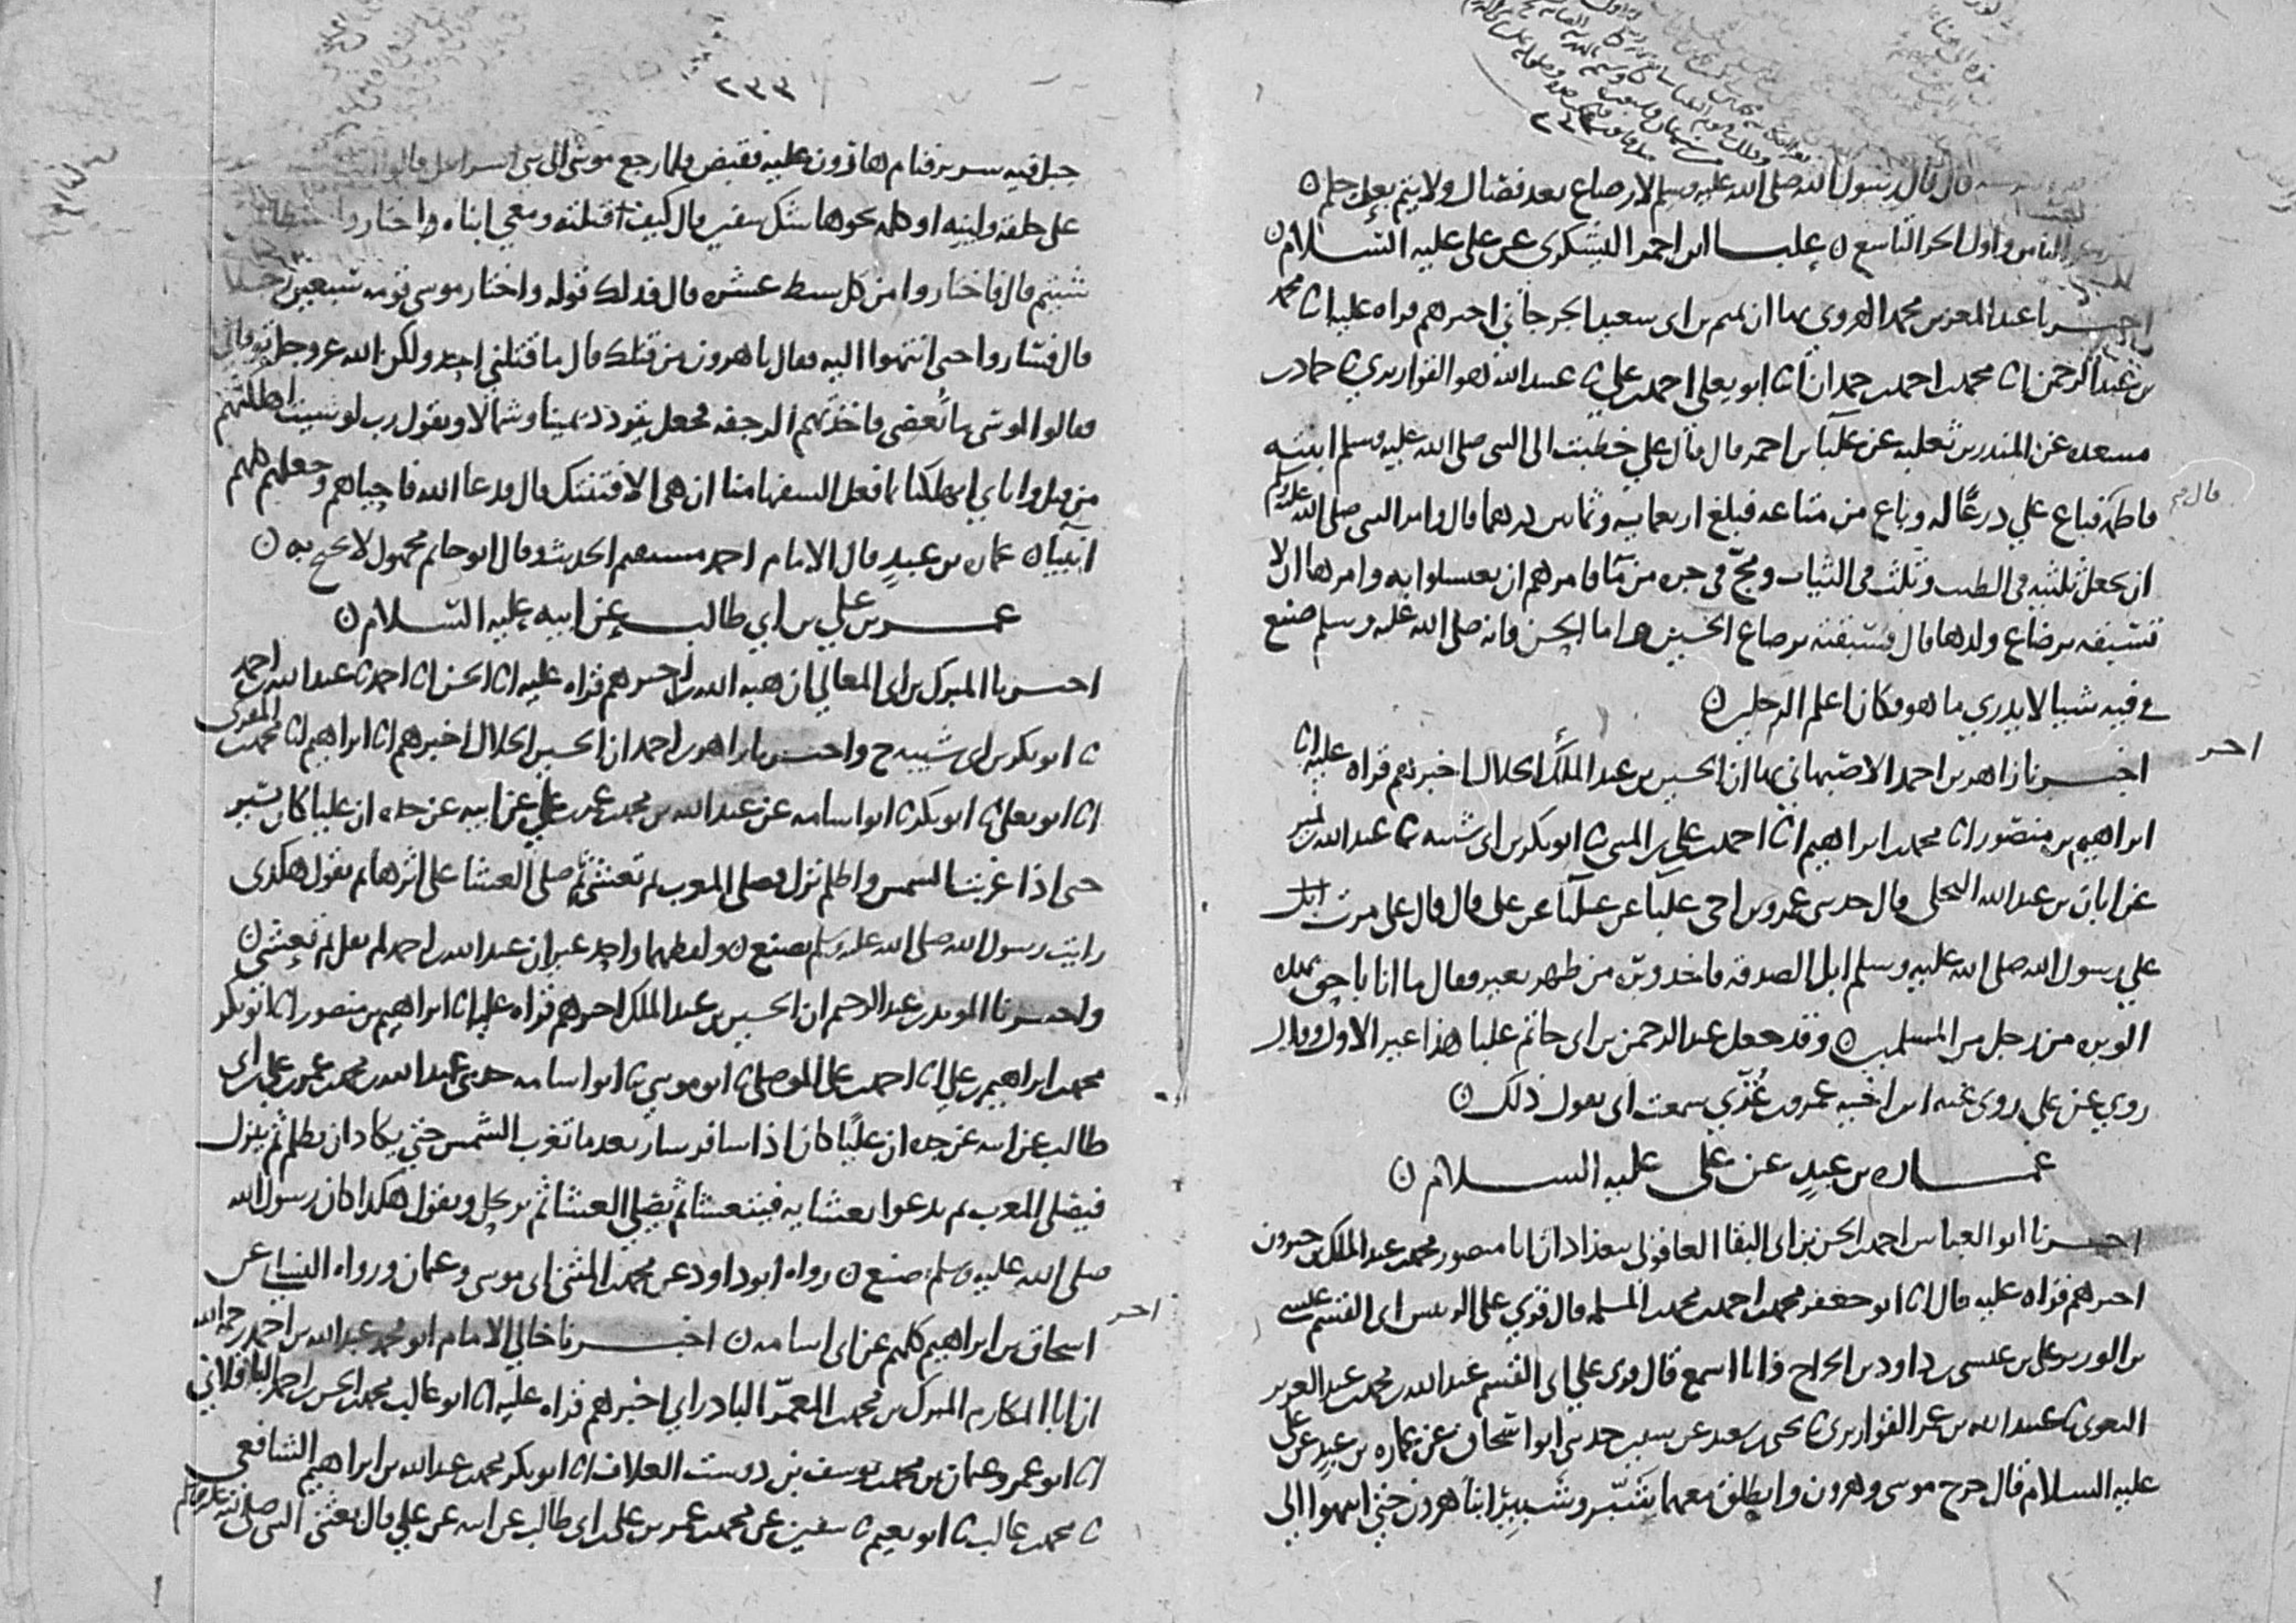 قال قال رسول الله صلى الله عليه وسلم لا رضاع بعد فصال ولا يتم بعد حلم ن
الثامن واول الجز التاسع ن علبا بن احمر اليشكري عن علي عليه السلام ن
اخبرنا عبد المعز بن محمد الهروي بها ان تميم بن ابي سعيد الجرجاني اخبرهم قراه عليه انا محمد
بن عبد الرحمن انا محمد بن احمد بن حمدان انا ابو يعلى احمد بن علي ثا عبيد الله هو القواريري ثا حماد بن
مسعده عن المنذر بن ثعلبه عن علبا بن احمر قال قال علي خطبت الى النبي صلى الله عليه وسلم ابنته
قال
فاطمه فباع علي درعا له وباع من متاعه فبلغ اربعمايه وثمانين درهما قال وامر النبي صلى الله عليه وسلم
ان يجعل ثلثيه في الطيب وثلث في الثياب ومج في جره من ما فامرهم ان يغسلوا به وامرها ان لا
تسبقه برضاع ولدها قال فسبقته برضاع الحسين واما الحسن فانه صلى الله عليه وسلم صنع
في فيه شيا لا يدري ما هو فكان اعلم الرجلين ن
اخر
اخبرنا زاهر بن احمد الاصبهاني بها ان الحسين بن عبد الملك الخلال اخبرهم قراه عليه انا
ابراهيم بن منصور انا محمد بن ابراهيم انا احمد بن علي بن المثنى ثا ابو بكر بن ابي شيبه ثا عبد الله بن نمير
عن ابان بن عبد الله البجلي قال حدثني عمرو بن اخي علبا عن علبا عن علي قال قال علي مرت ابل
علي رسول الله صلى الله عليه وسلم ابل الصدقه فاخذ وبره من ظهر بعير فقال ما انا باحق بهذه
الوبره من رجل من المسلمين ن وقد جعل عبد الرحمن بن ابي حاتم علبا هذا غير الاول وقال
روي عن علي روى عنه ابن اخيه عمرو بن غزي سمعت ابي يقول ذلك ن
عماره بن عبد عن علي عليه السلام ن
اخبرنا ابو العباس احمد بن الحسن بن ابي البقا العاقولي ببغداد ان ابا منصور محمد بن عبد الملك بن خيرون
اخبرهم قراه عليه قال انا ابو جعفر محمد بن احمد بن محمد بن المسلمه قال قري على الرييس ابي القسم عيسى
بن الوزير علي بن عيسى بن داود بن الجراح وانا اسمع قال قري علي ابي القسم عبد الله بن محمد بن عبد العزيز
البغوي ثا عبيد الله بن عمر القواريري ثا يحيى بن سعيد عن سفين حدثني ابو اسحاق عن عماره بن عبد عن علي
عليه السلام قال خرج موسى وهرون وانطلق معهما شبر وشبير ابنا هرون حتى انتهوا الى
٢٣٣
جبل فيه سرير فنام هارون عليه فقبض فلما رجع موسى الى بني اسرايل قالوا
على خلقه ولينه او كلمه نحوها شك سفين قال كيف اقتلته ومعي ابناه واختاروا
شيتم قال فاختاروا من كل سبط عشره قال فذلك قوله واختار موسى قومه سبعين رجلا
قال فساروا حتى انتهوا اليه فقال يا هرون من قتلك قال ما قتلني احد ولكن الله عز وجل توفاني
فقالوا لموسى ما تعصى فاخذتهم الرجفه فجعل يتردد يمينا وشمالا ويقول رب لو شيت اهلكتهم
من قبل واياي اتهلكنا بما فعل السفها منا ان هي الا فتنتك قال فدعا الله فاحياهم وجعلهم كلهم
انبيا ن عماره بن عبد قال الامام احمد مستقيم الحديث وقال ابو حاتم مجهول لا يحتج به ن
عمر بن علي بن ابي طالب عن ابيه عليه السلام ن
اخبرنا المبرك بن ابي المعالي ان هبه الله اخبرهم قراه عليه انا الحسن انا احمد ثا عبد الله بن احمد
ثا ابو بكر بن ابي شيبه ح واخبرنا زاهر بن احمد ان الحسين الخلال اخبرهم انا ابراهيم انا محمد بن المقري
انا ابو يعلى ثا ابو بكر ثا ابو اسامه عن عبد الله بن محمد بن عمر بن علي عن ابيه عن جده ان عليا كان يسير
حتى اذا غربت الشمس واظلم نزل فصلى المغرب ثم تعشى ثم صلى العشا على اثرها ثم يقول هكذى
رايت رسول الله صلى الله عليه وسلم يصنع ن ولفظهما واحد غير ان عبد الله بن احمد لم يقل ثم تعشى ن
واخبرنا المويد بن عبد الرحيم ان الحسين بن عبد الملك اخبرهم قراه عليه انا ابراهيم بن منصور انا ابو بكر
محمد بن ابراهيم بن علي انا احمد بن علي الموصلي ثا ابو موسى ثا ابو اسامه حدثني عبد الله بن محمد بن عمر بن علي بن ابي
طالب عن ابيه عن جده ان عليا كان اذا سافر سار بعد ما تغرب الشمس حتى يكاد ان يظلم ثم ينزل
فيصلي المغرب ثم يدعوا بعشايه فيتعشا ثم يصلي العشا ثم يرتحل ويقول هكذا كان رسول الله
صلى الله عليه وسلم صنع ن رواه ابو داود عن محمد بن المثنى ابي موسى وعثمان ورواه النسايي عن
اخر
اسحاق بن ابراهيم كلهم عن ابي اسامه ن اخبرنا خالي الامام ابو محمد عبد الله بن احمد رحمه الله
ان ابا المكارم المبرك بن محمد بن المعمر البادرايي اخبرهم قراه عليه انا ابو غالب محمد بن الحسن بن احمد الباقلاني
انا ابو عمرو عثمان بن محمد بن يوسف بن دوست العلاف انا ابو بكر محمد بن عبد الله بن ابراهيم الشافعي
ثا محمد بن غالب ثا ابو نعيم ثا سفين عن محمد بن عمر بن علي بن ابي طالب عن ابيه عن علي قال بعثني النبي صلى الله عليه وسلم